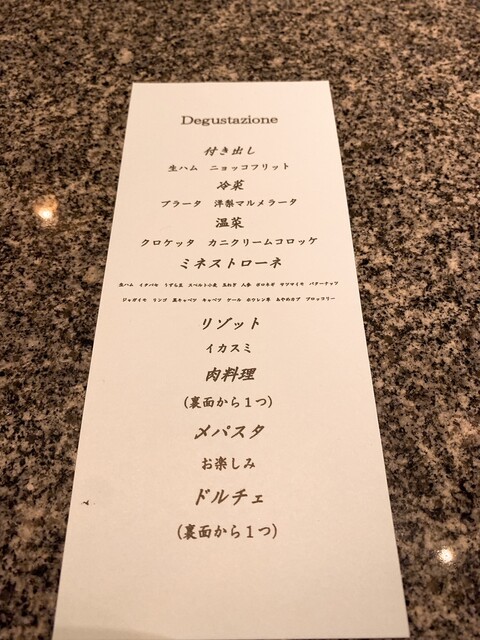 Degustazione
付き出し
生ハム ニョッコフリット
冷菜
ブラータ 洋梨マルメラータ
温菜
クロケッタ カニクリームコロッケ
ミネストローネ
生ハム イタパセ うずら豆 スペルト小麦 玉ねぎ 人参 ポロネギ サツマイモ バターナッツ
ジャガイモ リンゴ 黒キャベツ キャベツ ケール ホウレン草 あやめカブ ブロッコリー
リゾット
イカスミ
肉料理
(裏面から1つ)
〆パスタ
お楽しみ
ドルチェ
(裏面から1つ)